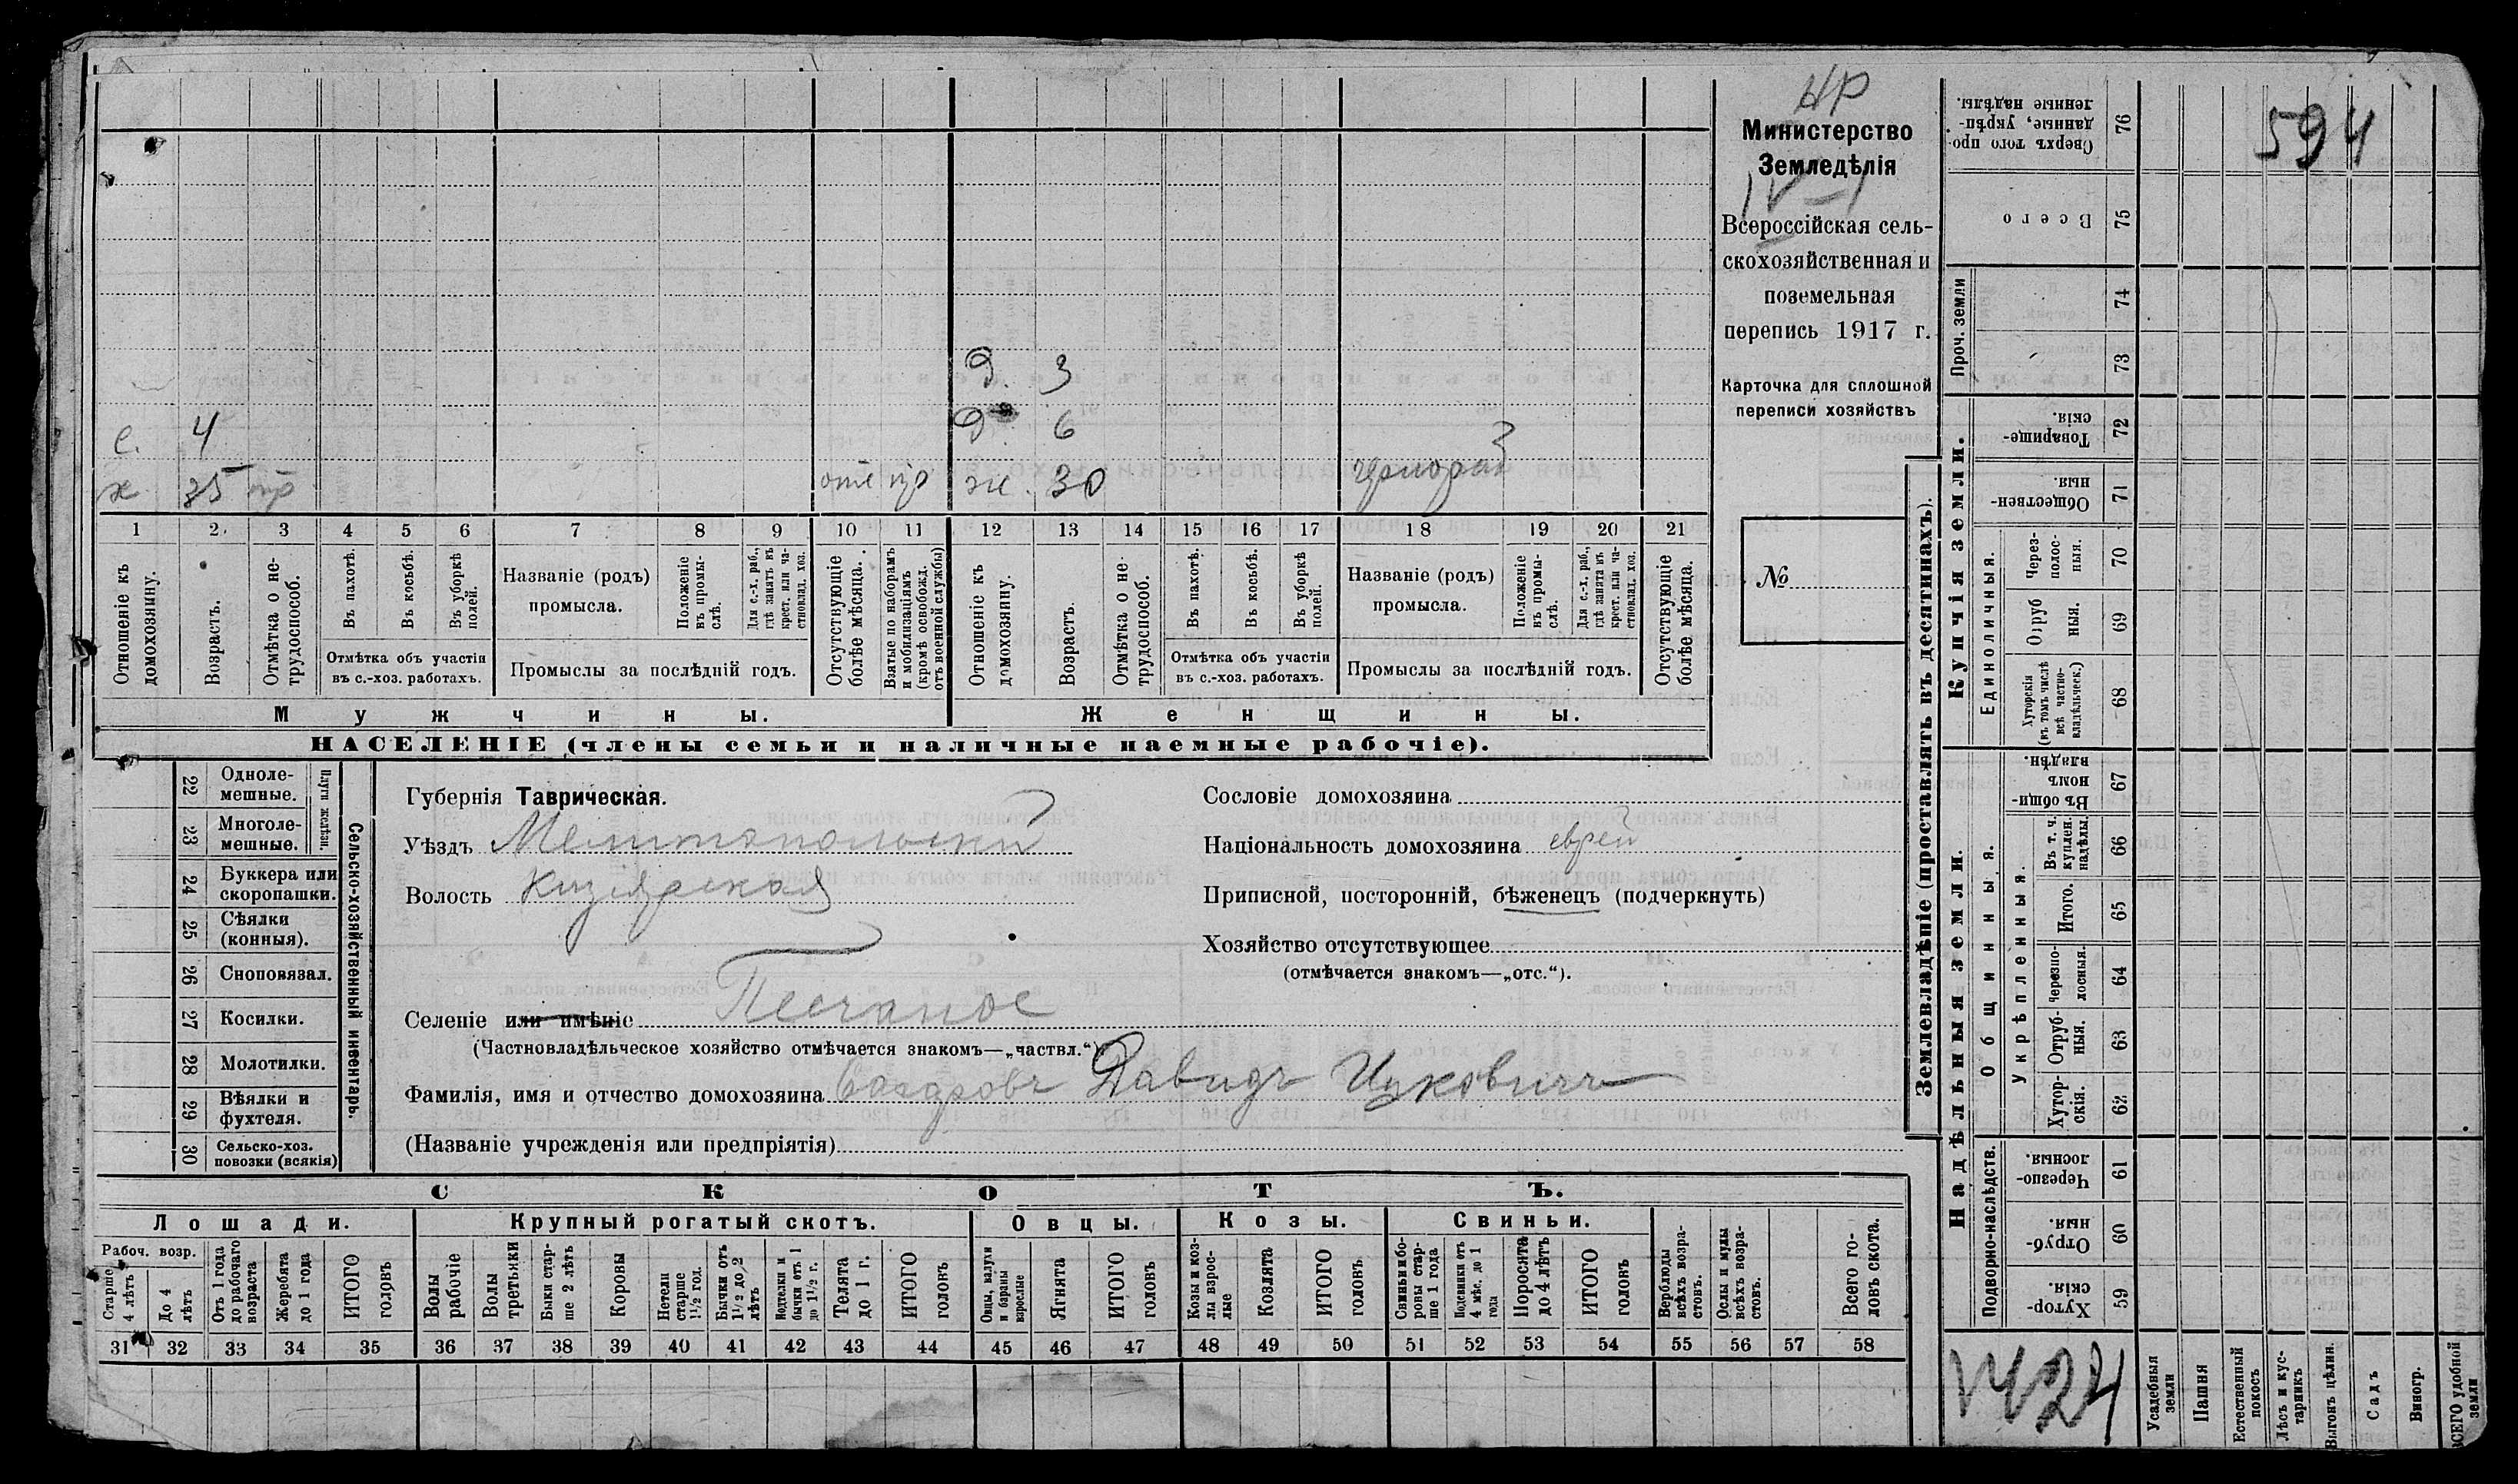 НР
Министерство
Земледѣлія
IV–1
Всероссійская сель-
скохозяйственная и
поземельная
перепись 1917 г.
Карточка для сплошной
переписи хозяйствъ
№
594
Д. 3
с. 4 Д 6
х 35 отс пр ж 30
1 2 3 4 5 6 7 8 9 10 11 12 13 14 15 16 17 18 19 20 21
Отношеніе къ домохозяину.
Возрастъ.
Отмѣтка о не-трудоспособ.
Въ пахотѣ.
Въ косьбѣ.
Въ уборкѣ полей.
Отмѣтка объ участіи
въ с.-хоз. работахъ.
Названіе (родъ)
промысла.
Положеніе въ промы-слѣ.
Для с.-х. раб., гдѣ занятъ въ крест. или ча-стновлад. хоз.
Промыслы за послѣдній годъ.
Отсутствующіе болѣе мѣсяца.
Взятые по наборамъ и мобилизаціямъ (кромѣ освобожд. отъ военной службы)
Отношеніе къ домохозяину.
Возрастъ.
Отмѣтка о не трудоспособ.
Въ пахотѣ.
Въ косьбѣ.
Въ уборкѣ полей.
Отмѣтка объ участіи
въ с.-хоз. работахъ.
Названіе (родъ)
промысла.
Положеніе въ промы-слѣ.
Для с.-х. раб., гдѣ занята въ крест. или ча-стновлад. хоз.
Промыслы за послѣдній годъ.
Отсутствующіе болѣе мѣсяца.
Мужчины.
Женщины.
НАСЕЛЕНІЕ (члены семьи и наличные наемные рабочіе).
Сельско-хозяйственный инвентарь.
Плуги желѣзн.
22 Одноле-мешные.
23 Многоле-мешные.
24 Буккера или скоропашки.
25 Сѣялки (конныя).
26 Сноповязал.
27 Косилки.
28 Молотилки.
29 Вѣялки и фухтеля.
30 Сельско-хоз. повозки (всякія)
Губернія Таврическая.
Уѣздъ Мелитопольскій
Волость Кизіярская
Селеніе или имѣніе Песчаное
(Частновладѣльческое хозяйство отмѣчается знакомъ—„частвл.“)
Фамилія, имя и отчество домохозяина Давидъ Ицковичъ
(Названіе учрежденія или предпріятія)
Сословіе домохозяина
Національность домохозяина еврей
Приписной, посторонній, бѣженецъ (подчеркнуть)
Хозяйство отсутствующее
(отмѣчается знакомъ—„отс.“).
СКОТЪ.
Лошади. Крупный рогатый скотъ. Овцы. Козы. Свиньи.
Рабоч. возр.
Старше 4 лѣтъ
До 4 лѣтъ
Отъ 1 года до рабочаго возраста
Жеребята до 1 года
ИТОГО головъ
Волы рабочіе
Волы третьяки
Быки стар-ше 2 лѣтъ
Коровы
Нетели старше 1½ год.
Бычки отъ 1½ до 2 лѣтъ
Подтелки и бычки отъ 1 до 1½ г.
Телята до 1 г.
ИТОГО головъ
Овцы, валухи и бараны взрослые
Ягнята
ИТОГО головъ
Козы и коз-лы взрос-лые
Козлята
ИТОГО головъ
Свиньи и бо-ровы стар-ше 1 года
Подсвинки отъ 4 мѣс. до 1 года
Поросята до 4 лѣтъ
ИТОГО головъ
Верблюды всѣхъ возра-стовъ.
Ослы и мулы всѣхъ возра-стовъ.
Всего го-ловъ скота.
31 32 33 34 35 36 37 38 39 40 41 42 43 44 45 46 47 48 49 50 51 52 53 54 55 56 57 58
Землевладѣніе (проставлять въ десятинахъ).
Купчія земли.
Надѣльныя земли.
Сверхъ того про-данные, укрѣп-ленные надѣлы. 76
Всего 75
Проч. земли 74 73
Товарище-скія. 72
Обществен-ныя. 71
Единоличныя.
Через-полос-ныя. 70
Отруб ныя. 69
Хуторскія (въ томъ числѣ всѣ частно-владѣльческ.) 68
Общинныя.
Въ общин-номъ владѣн. 67
Укрѣпленныя.
Въ т. ч. куплен. надѣлы. 66
Итого. 65
Черезпо-лосныя. 64
Отруб-ныя. 63
Хутор-скія. 62
Подворно-наслѣдств.
Черезпо-лосныя. 61
Отруб-ныя. 60
Хутор-скія. 59
Усадебныя земли
Пашня
Естественный покосъ
Лѣсъ и кус-тарникъ
Выгонъ цѣлин.
Садъ
Виногр.
ВСЕГО удобной земли